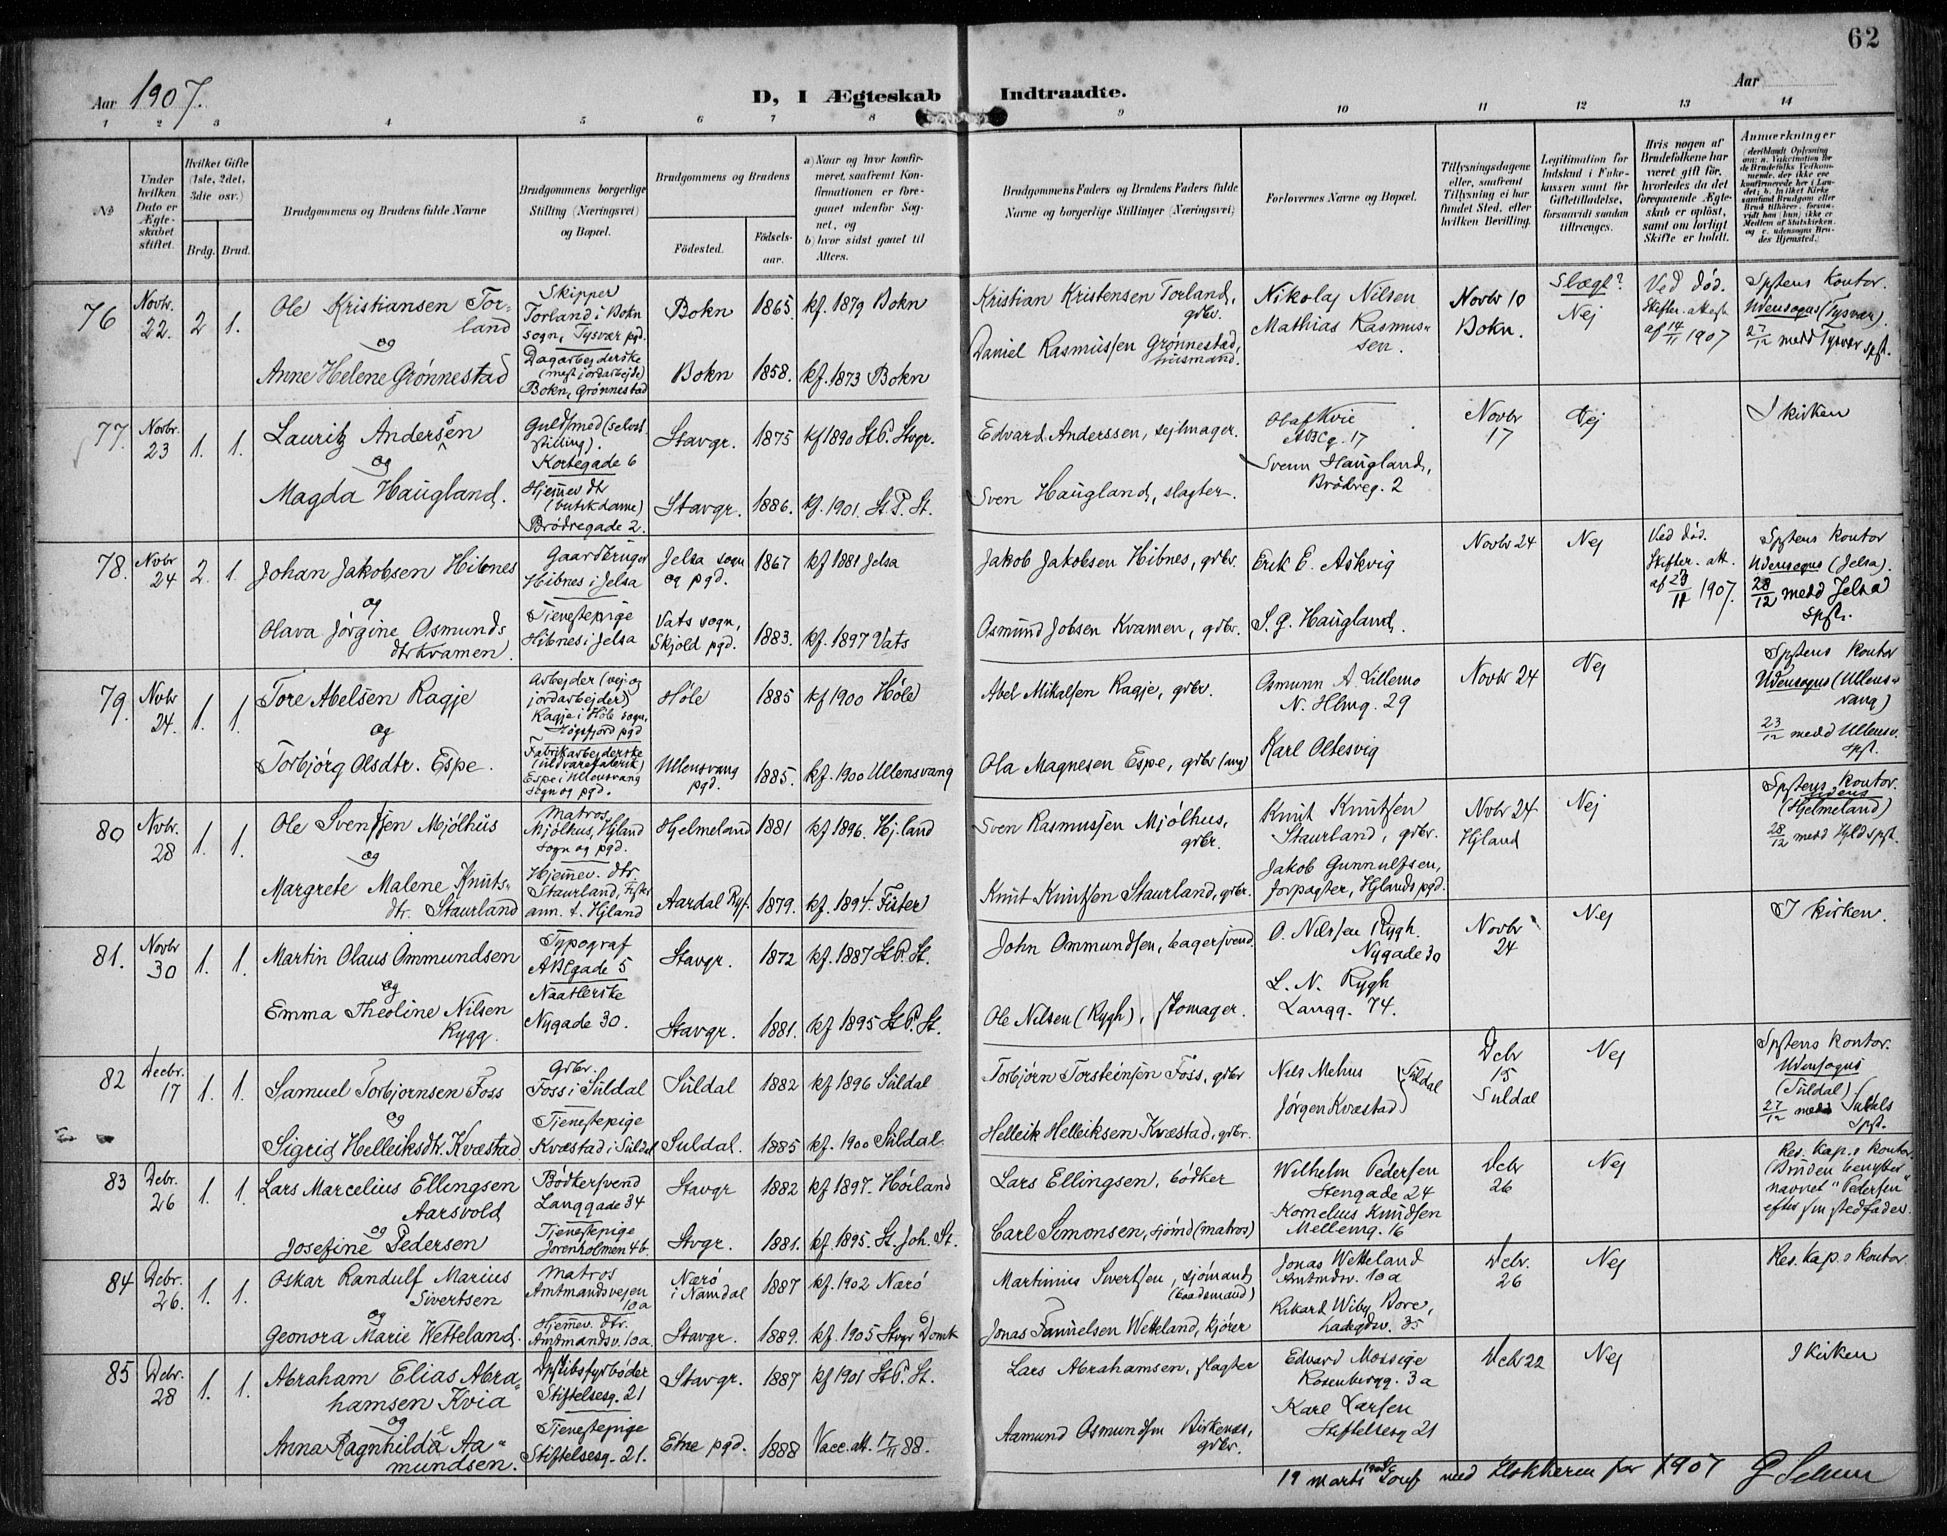 62
Aar 1907.
D, I Ægteskab Indtraadte.
Aar
1 2 3 4 5 6 7 8 9 10 11 12 13 14
No
Under hvilken Dato er Ægteskabet stiftet.
Hvilket Gifte (1ste, 2det, 3die osv.)
Brdg. Brud.
Brudgommens og Brudens fulde Navne
Brudgommens borgerlige Stilling (Næringsvei) og Bopæl.
Brudgommens og Brudens
Fødested. Fødselsaar.
a) Naar og hvor konfirmeret, saafremt Konfirmationen er foregaaet udenfor Sognet, og
b) hvor sidst gaaet til Alters.
Brudgommens Faders og Brudens Faders fulde Navne og borgerlige Stillinger (Næringsvei)
Forlovernes Navne og Bopæl.
Tillysningsdagene eller, saafremt Tillysning ei har fundet Sted, efter hvilken Bevilling.
Legitimation for Indskud i Enkekassen samt for Giftetilladelse, forsaavidt saadan tiltrænges.
Hvis nogen af Brudefolkene har været gift før, hvorledes da det foregaaende Ægteskab er opløst, samt om lovligt Skifte er holdt.
Anmærkninger
76 Novbr. 22. 2 1.
Ole Kristiansen Torland
og
Anne Helene Grønnestad
Skipper Torland i Bokn sogn, Tysvær pgd.
Dagarbejderske (mest jordarbejde) Bokn, Grønnestad
Bokn 1865. kf. 1879 Bokn
Bokn 1858. kf. 1873 Bokn
Kristian Kristensen Torland, grbr.
Daniel Rasmussen Grønnestad, husmand.
Nikolaj Nilsen
Mathias Rasmussen.
Novbr 10 Bokn.
Slægt? Nej
Ved død. Skifter. attest af 14/11 1907
Spstens kontor. Udensogns (Tysvær). 27/12 medd Tysvær spst.
77. Novbr. 23 1. 1.
Lauritz Anderssen
og
Magda Haugland.
Guldsmed (selvst. stilling). Kortegade 6
Hjemmev. dtr (butikdame) Brødregade 2.
Stavgr. 1875 kf 1890 St.P. Stvgr.
Stavgr. 1886. kf. 1901. St.P. St.
Edvard Anderssen, sejlmager.
Sven Haugland, slagter.
Olaf Kvie ABCg. 17
Svenn Haugland, Brødreg. 2
Novbr 17
Nej
I kirken
78. Novbr 24 2. 1.
Johan Jakobsen Hibnes
og
Olava Jørgine Osmundsdtr Kvamen.
Gaardbruger Hibnes i Jelsa
Tjenestepige Hibnes i Jelsa
Jelsa sogn og pgd. 1867 kf 1881 Jelsa
Vats sogn, Skjold pgd. 1883. kf. 1897 Vats
Jakob Jakobsen Hibnes, grbr.
Osmund Jobsen Kvamen, grbr.
Erik E. Askvig
S. G. Haugland.
Novbr 24
Nej
Ved død. Skifter. att. af 23/11 1907.
Spstens kontor Udensogns (Jelsa). 28/12 medd Jelsa Spst.
79. Novbr 24. 1. 1.
Tore Abelsen Ragje
og
Torbjørg Olsdtr. Espe.
Arbejder (vej og jordarbejder) Ragje i Høle sogn, Høgsfjord pgd
Fabrikarbejderske (uldvarefabrik) Espe i Ullensvang sogn og pgd.
Høle 1885 kf 1900 Høle
Ullensvang pgd. 1885. kf. 1900 Ullensvang
Abel Mikalsen Ragje, grbr.
Ola Magnesen Espe, grbr (ung)
Osmunn A. Lillemo N. Hlmg. 29
Karl Oltesvig
Novbr 24
Nej
Spstens kontor Udensogns (Ullensvang) 23/12 medd Ullensv. spst.
80 Novbr. 28 1. 1.
Ole Svendsen Mjølhus
og
Margrete Malene Knutsdtr. Staurland
Matros, Mjølhus, Hjland sogn og pgd.
Hjemmev. dtr. Staurland, Fister ann. t. Hjland
Hjelmeland 1881 kf 1896. Hjland
Aardal Ryf. 1879. kf. 1894. Fister
Sven Rasmussen Mjølhus, grbr.
Knut Knutsen Staurland, grbr.
Knut Knutsen Staurland, grbr.
Jakob Gunnulfsen, forpagter, Hjlands pgd.
Novbr 24 Hjland
Nej
Spstens kontor. udens (Hjelmeland) 28/12 medd Hjld spst.
81. Novbr 30 1. 1.
Martin Olaus Ommundsen
og
Emma Theoline Nilsen Rygg.
Typograf ABCgade 5
Naatlerske Nygade 30.
Stavgr. 1872 kf. 1887 St.P. St.
Stavgr. 1881. kf 1895 St.P. St.
John Ommundsen, bagersvend.
Ole Nilsen (Rygh), skomager.
O. Nilssen Rygh. Nygade 30
L. N. Rygh Langg. 74.
Novbr 24
Nej
I kirken.
82 Decbr. 17 1. 1.
Samuel Torbjørnsen Foss
og
Sigrid Helleiksdtr. Kvæstad
Grbr. Foss i Suldal
Tjenestepige Kvæstad i Suldal
Suldal 1882 kf 1896 Suldal
Suldal. 1885 kf. 1900 Suldal.
Torbjørn Torsteinsen Foss, grbr
Helleik Helleiksen Kvæstad, grbr.
Nils Mehus
Jørgen Kvæstad } Suldal
Dcbr 15 Suldal
Nej
Spstens kontor. Udensogns (Suldal) 27/12 medd Suldals Spst.
83 Dcbr. 26 1. 1.
Lars Marcelius Ellingsen Aarsvold
og
Josefine Pedersen
Bødkersvend Langgade 34
Tjenestepige Jorenholmen 4b.
Stavgr 1882 kf 1897. Høiland
Stvgr. 1881. kf. 1895. St. Joh. St.
Lars Ellingsen, bødker
Carl Simonsen, sjømd (matros)
Wilhelm Pedersen Stengade 24
Kornelius Knudsen Mellemg. 16
Dcbr 26
Nej
Res. kap.s kontor (Bruden benytter navnet "Pedersen" efter sin stedfader.
84 Dcbr. 26. 1. 1.
Oskar Randulf Marius Sivertsen
og
Geonora Marie Wetteland.
Matros Amtmandsvejen 10a
Hjemmev. dtr. Amtmandsv. 10a.
Nærø i Namdal 1887 kf. 1902 Nærø
Stavgr. 1889. kf. 1905 Stvgr Domk
Martinius Sivertsen, sjømand (baadsmand)
Jonas Samuelsen Wetteland, kjører
Jonas Wetteland Amtmdsv. 10a
Rikard Wiby Bore, Ladegdsv. 35
Dcbr. 26
Nej
Res. kap.s kontor.
85 Dcbr. 28 1. 1.
Abraham Elias Abrahamsen Kvia
og
Anna Ragnhilda Aamundsen.
Dpskibsfyrbøder Stiftelsesg. 21
Tjenestepige Stiftelsesg. 21.
Stavgr. 1887 kf 1901 St.P. St.
Etne pgd. 1888 Vacc. att. 17/11 88.
Lars Abrahamsen, slagter
Aamund Osmundsen Birkenes, grbr.
Edvard Mossige Rosenbergg. 3a
Karl Larsen Stiftelsesg 21
Dcbr 22
Nej
I kirken
19 marts 1908 Conf med Klokkeren for 1907